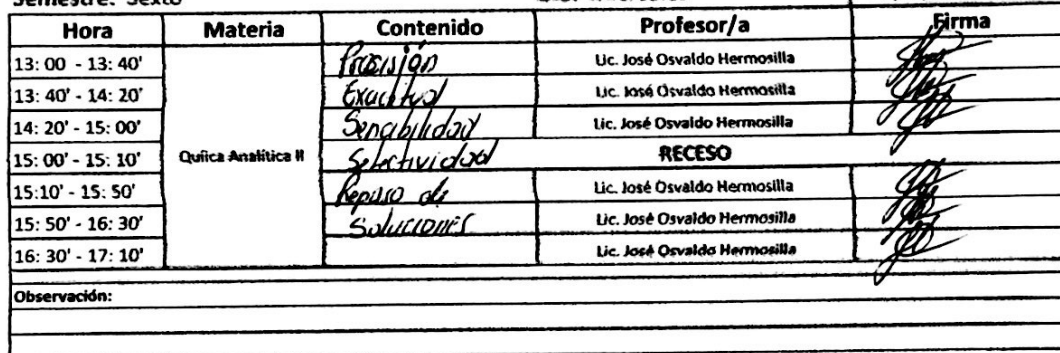 Semestre: Sexto
Hora Materia Contenido Profesor/a Firma
13: 00 - 13: 40' Precisión Lic. José Osvaldo Hermosilla
13: 40' - 14: 20' Exactitud Lic. José Osvaldo Hermosilla
14: 20' - 15: 00' Sensibilidad Lic. José Osvaldo Hermosilla
15: 00' - 15: 10' Quíica Analítica II Selectividad RECESO
15:10' - 15: 50' Repaso de Lic. José Osvaldo Hermosilla
15: 50' - 16: 30' Soluciones Lic. José Osvaldo Hermosilla
16: 30' - 17: 10' Lic. José Osvaldo Hermosilla
Observación: